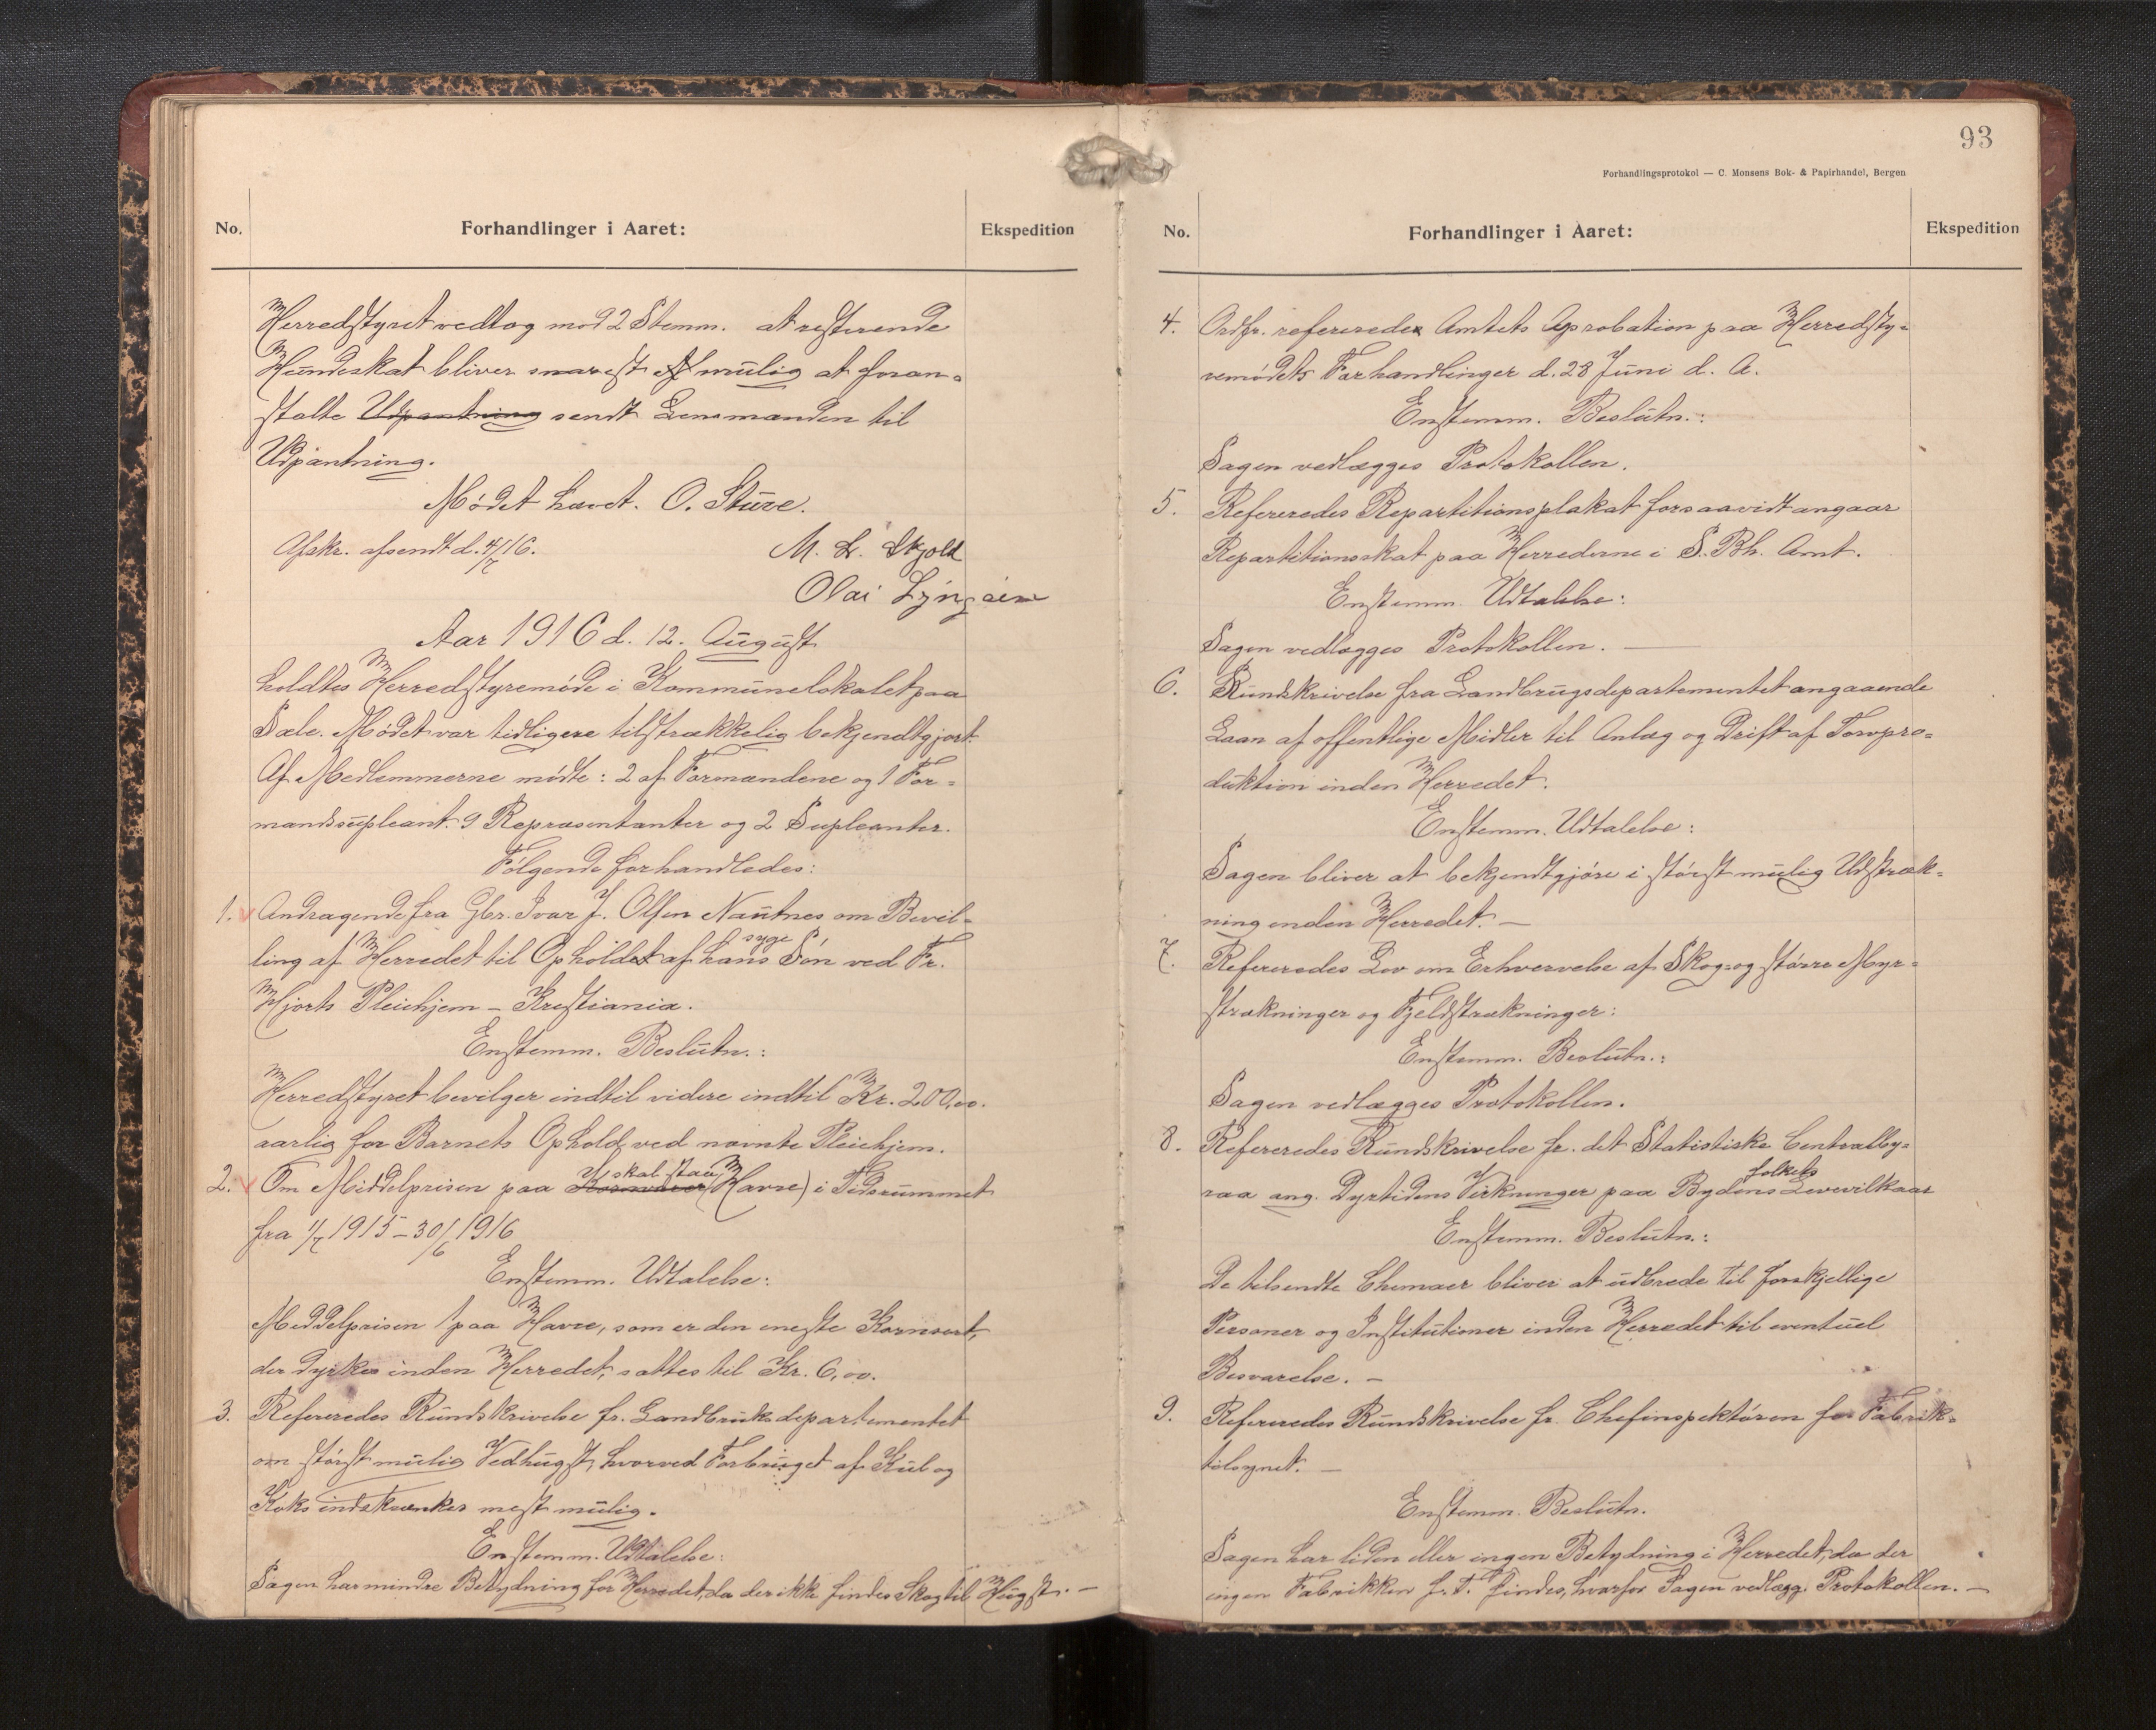 No.
Forhandlinger i Aaret:
Ekspedition
Herredstyret vedtog mod 2 Stemm. at resterende
Hundeskat bliver snarest mulig at foran-
stalte Udpantning sendt Lensmanden til
Udpantning.
Mødet hævet. O. Sture.
Afskr. afsendt d. 4/7 16.
M. L. Skjold
Olai Lyngøien
Aar 1916 d. 12. August
holdtes Herredstyremøde i Kommunelokalet paa
Sæle. Mødet var tidligere tilstrækkelig bekjendtgjort.
Af Medlemmerne mødte: 2 af Formændene og 1 For-
mandssupleant. 9 Repræsentanter og 2 Supleanter.
Følgende forhandledes:
1. Andragende fra Gbr. Ivar J. Olsen Nautnes om Bevil-
ling af Herredet til Opholdet af hans syge Søn ved Fr.
Hjorts Pleiehjem - Kristiania.
Enstemm. Beslutn.:
Herredstyret bevilger indtil videre indtil Kr. 200,00.
aarlig for Barnets Ophold ved nævnte Pleiehjem.
2. Om Middelprisen paa Kornvarer (skal staa Havre) i Tidsrummet
fra 1/7 1915 - 30/6 1916
Enstemm. Udtalelse:
Middelprisen paa Havre, som er den eneste Kornsort,
der dyrkes inden Herredet, sættes til Kr. 6,00.
3. Refereredes Rundskrivelse fr. Landbruksdepartementet
om størst mulig Vedhugst, hvorved Forbruget af Kul og
Koks indskrænkes mest mulig.
Enstemm. Udtalelse:
Sagen har mindre Betydning for Herredet, da der ikke findes Skog til Hugst. -
93
Forhandlingsprotokol — C. Monsens Bok- & Papirhandel, Bergen
No.
Forhandlinger i Aaret:
Ekspedition
4. Ordfr. refererede Amtets Aprobation paa Herredsty-
remødets Forhandlinger d. 28 Juni d. A.
Enstemm. Beslutn.:
Sagen vedlægges Protokollen.
5. Refereredes Repartitionsplakat forsaavidt angaar
Repartitionsskat paa Herrederne i S. Bh. Amt.
Enstemm. Udtalelse:
Sagen vedlægges Protokollen. -
6. Rundskrivelse fra Landbrugsdepartementet angaaende
Laan af offentlige Midler til Anlæg og Drift af Torvpro-
duktion inden Herredet.
Enstemm. Udtalelse:
Sagen bliver at bekjendtgjøre i størst mulig Udstræk-
ning enden Herredet. -
7. Refereredes Lov om Erhvervelse af Skog- og større Myr-
strækninger og Fjeldstrækninger:
Enstemm. Beslutn.:
Sagen vedlægges Protokollen.
8. Refereredes Rundskrivelse fr. det Statistiske Centralby-
raa ang. Dyrtidens Virkninger paa Bydens folkets Levevilkaar
Enstemm. Beslutn.:
De tilsendte Chemaer bliver at udbrede til forskjellige
Personer og Institutioner inden Herredet til eventuel
Besvarelse. -
9. Refereredes Rundskrivelse fr. Chefinspektøren for Fabrik-
tilsynet. -
Enstemm. Beslutn.
Sagen har liden eller ingen Betydning i Herredet, da der
ingen Fabrikken f. T. findes, hvorfor Sagen vedlægg. Protokollen. -